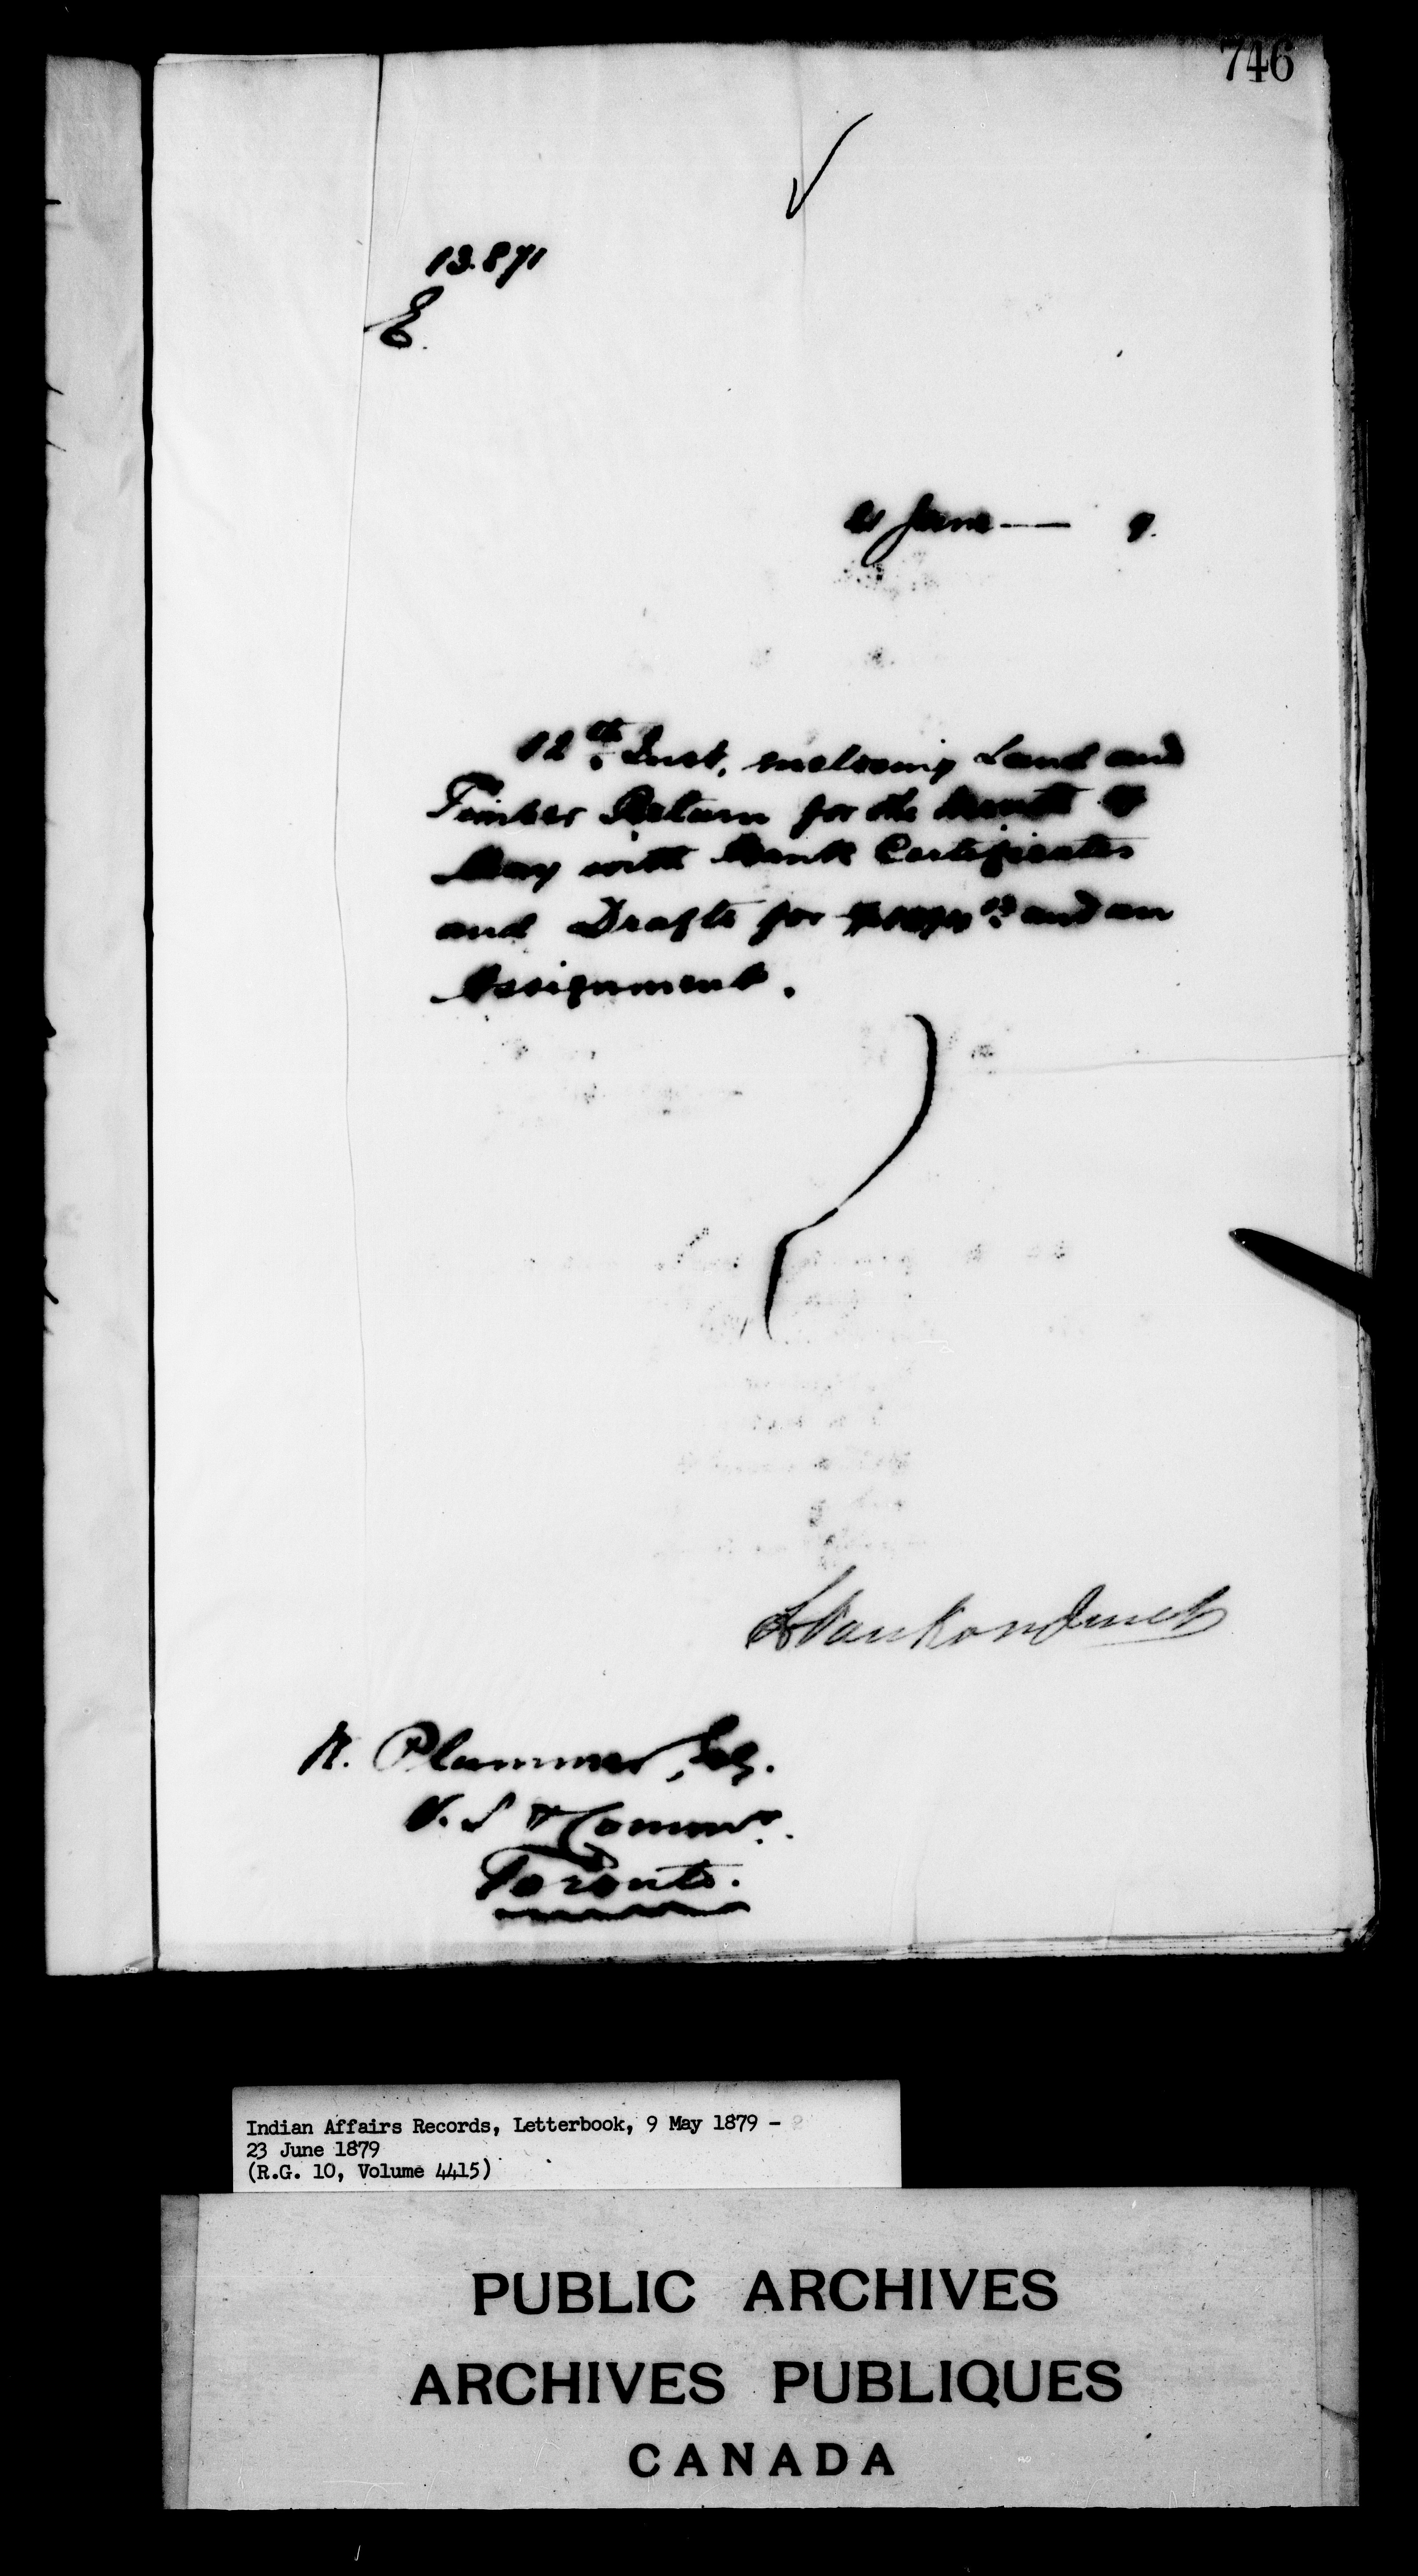 746
13.871
E.
21 June — 9.
12th Inst, enclosing Land and
Timber Return for the Month of
May with Bank Certificates
and Drafts for and an
Assignment.
L VanKoughnet
W. Plummer, Esq.
V. S & Commr.
Toronto.
Indian Affairs Records, Letterbook, 9 May 1879 -
23 June 1879
(R.G. 10, Volume 4415)
PUBLIC ARCHIVES
ARCHIVES PUBLIQUES
CANADA